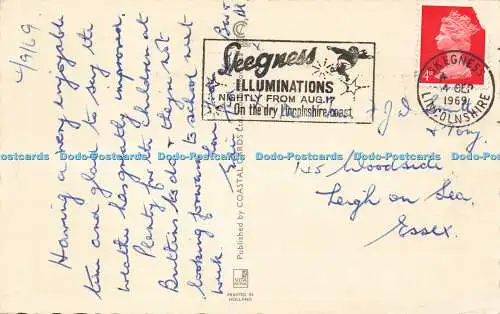 4/9/69
Having a very enjoyable
time and glad to say the
weather has greatly improved.
Plenty for the children at
Butlins to do & they are not
looking forward to school next
week.
Best
Published by COASTAL CARDS
PRINTED IN
HOLLAND
Skegness
ILLUMINATIONS
NIGHTLY FROM AUG.17
On the dry Lincolnshire coast
SKEGNESS
4 SEP
1969
LINCOLNSHIRE
4D
& Tony.
145 Woodside
Leigh on Sea,
Essex.
Dodo-Postcards Dodo-Postcards Dodo-Postcards Dodo-Postcards Dodo-Postcards Dodo-Postcards